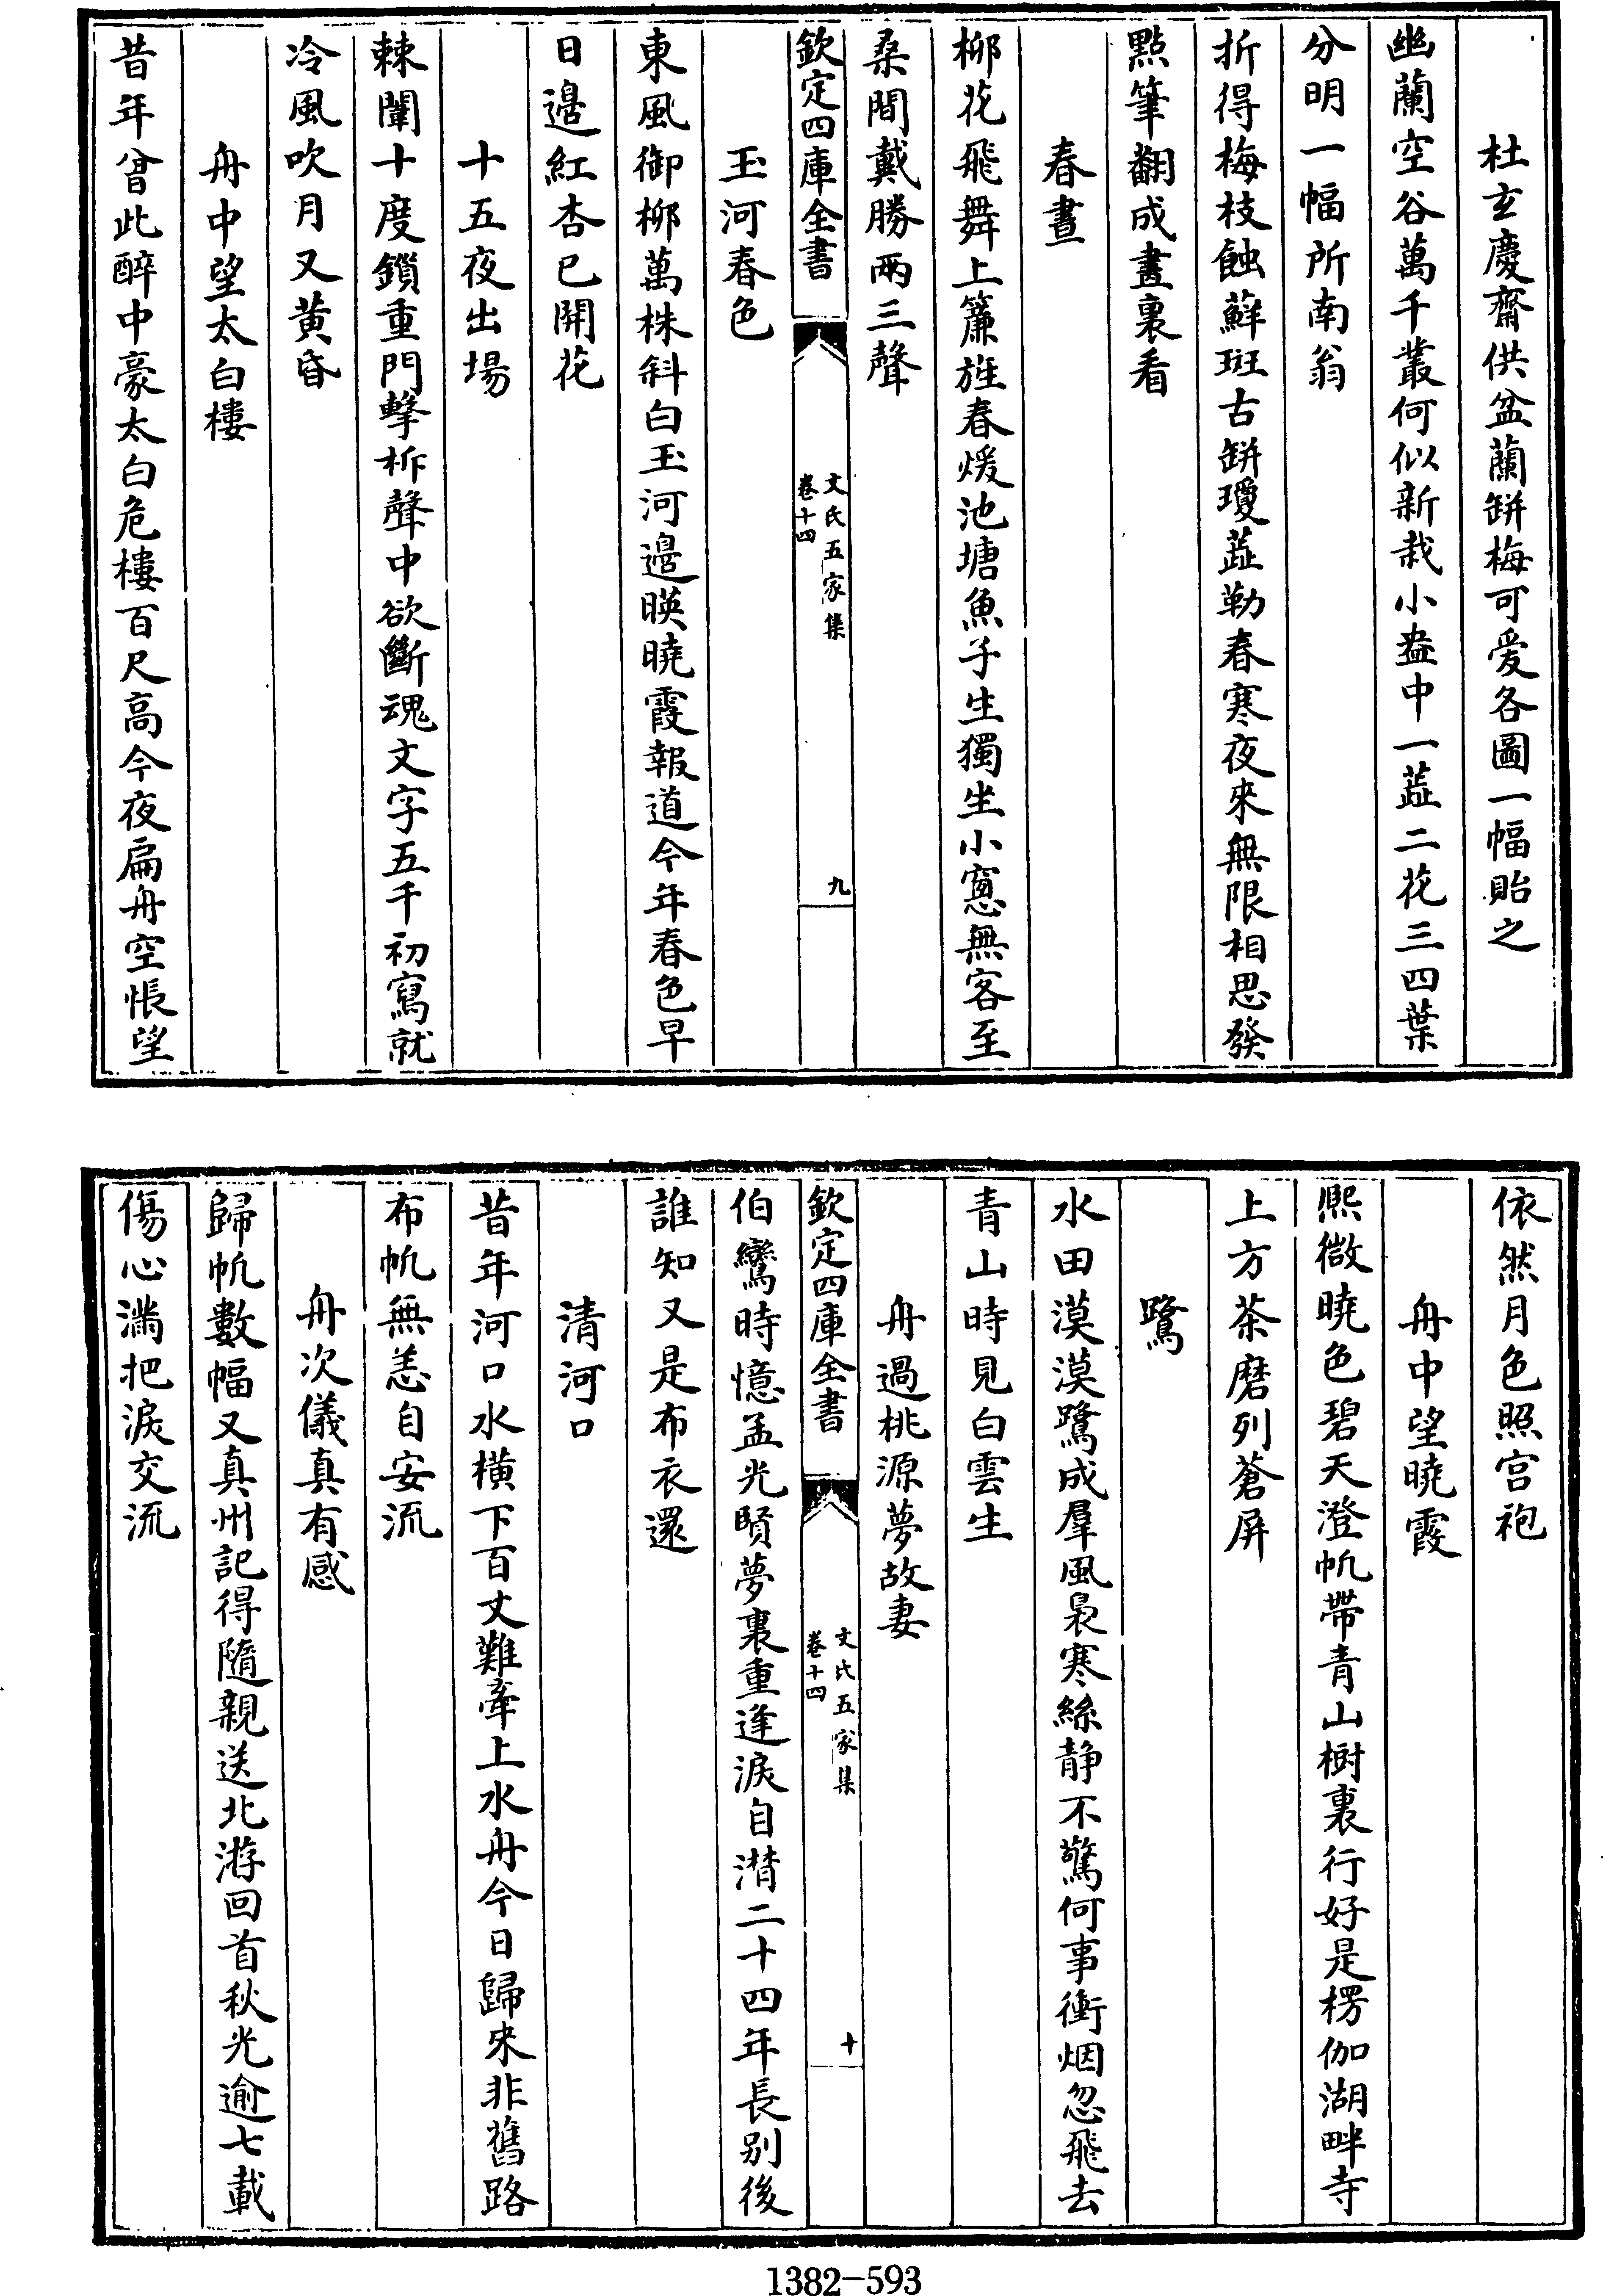 杜玄慶齋供盆蘭缾梅可爱各圖一幅貽之
幽蘭空谷萬千叢何似新栽小盎中一蕋二花三四葉
分明一幅所南翁
折得梅枝蝕蘚斑古缾瓊蕋勒春寒夜來無限相思發
點筆翻成畫裏看
春晝
柳花飛舞上簾旌春煖池塘魚子生獨坐小窻無客至
桑間戴勝兩三聲
欽定四庫全書
文氏五家集
卷十四
九
玉河春色
東風御柳萬株斜白玉河邉暎曉霞報道今年春色早
日邉紅杏已開花
十五夜出場
棘闈十度鎖重門擊柝聲中欲斷魂文字五千初寫就
冷風吹月又黄昏
舟中望太白樓
昔年曾此醉中豪太白危樓百尺高今夜扁舟空悵望
依然月色照宫袍
舟中望曉霞
熙微曉色碧天澄帆帶青山樹裏行好是楞伽湖畔寺
上方茶磨列蒼屏
鷺
水田漠漠鷺成羣風裊寒絲静不驚何事衝烟忽飛去
青山時見白雲生
舟過桃源夢故妻
欽定四庫全書
文氏五家集
卷十四
十
伯鸞時憶孟光賢夢裏重逢淚自潸二十四年長别後
誰知又是布衣還
清河口
昔年河口水横下百丈難牽上水舟今日歸来非舊路
布帆無恙自安流
舟次儀真有感
歸帆數幅又真州記得隨親送北游回首秋光逾七載
傷心滿把淚交流
1382-593